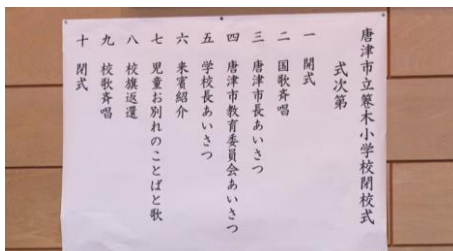 唐津市立箞木小学校閉校式
式次第
一 開式
二 国歌斉唱
三 唐津市長あいさつ
四 唐津市教育委員会あいさつ
五 学校長あいさつ
六 来賓紹介
七 児童お別れのことばと歌
八 校旗返還
九 校歌斉唱
十 閉式